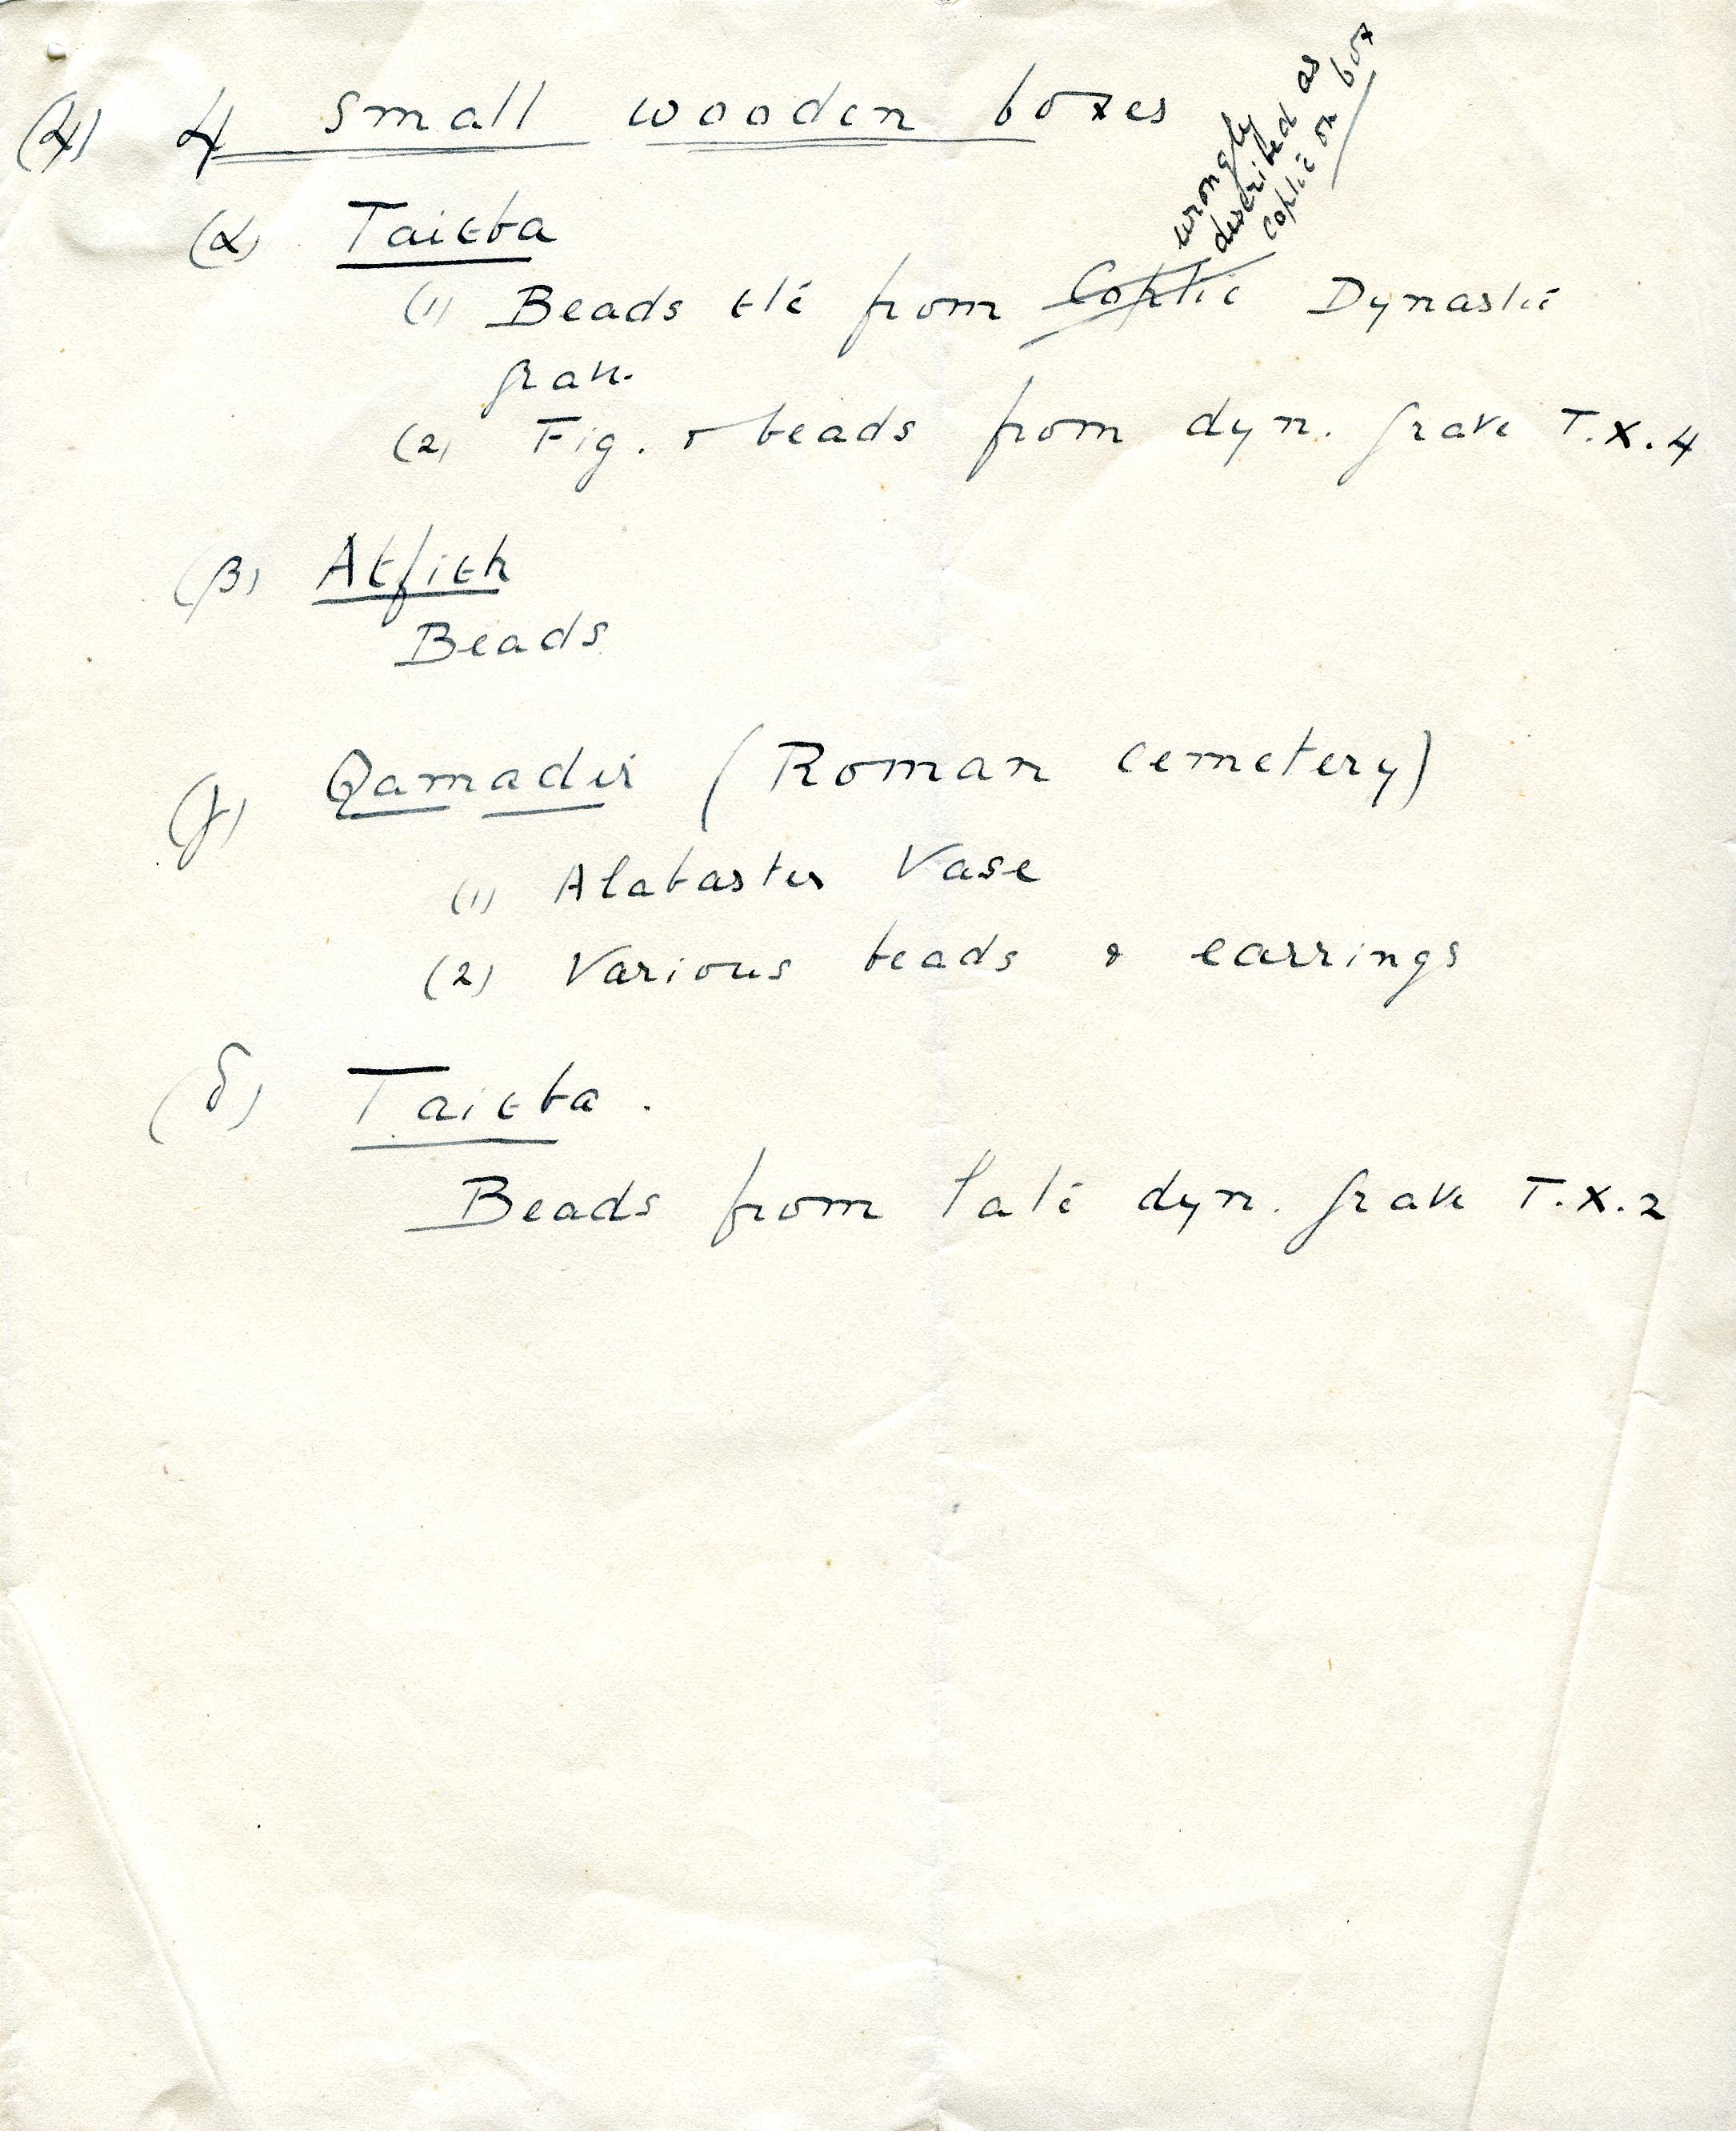 (4) 4 small wooden boxes
wrongly
described as
coptic on box
(α) Taieba
(1) Beads etc from Coptic Dynastic
grave.
(2) Fig. & beads from dyn. grave T.X.4
(β) Atfieh
Beads
(γ) Qamadir (Roman cemetery)
(1) Alabaster Vase
(2) Various beads & earrings
(δ) Taieba.
Beads from late dyn. grave T.X.2